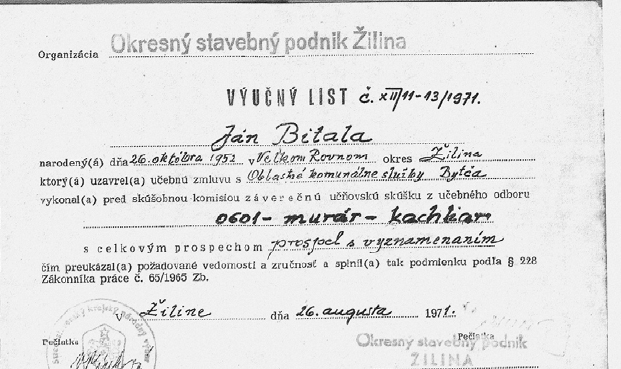 Organizácia Okresný stavebný podnik Žilina
VÝUČNÝ LIST č. XII/11-13/1971.
Ján Bitala
narodený(á) dňa 26. októbra 1952 v Veľkom Rovnom okres Žilina
ktorý(á) uzavrel(a) učebnú zmluvu s Oblastné komunálne služby Bytča
vykonal(a) pred skúšobnou komisiou záverečnú učňovskú skúšku z učebného odboru
0601 - murár - kachliar
s celkovým prospechom prospel s vyznamenaním
čím preukázal(a) požadované vedomosti a zručnosť a splnil(a) tak podmienku podľa § 228
Zákonníka práce č. 65/1965 Zb.
V Žiline dňa 26. augusta 1971.
Pečiatka Pečiatka
Okresný stavebný podnik
ŽILINA